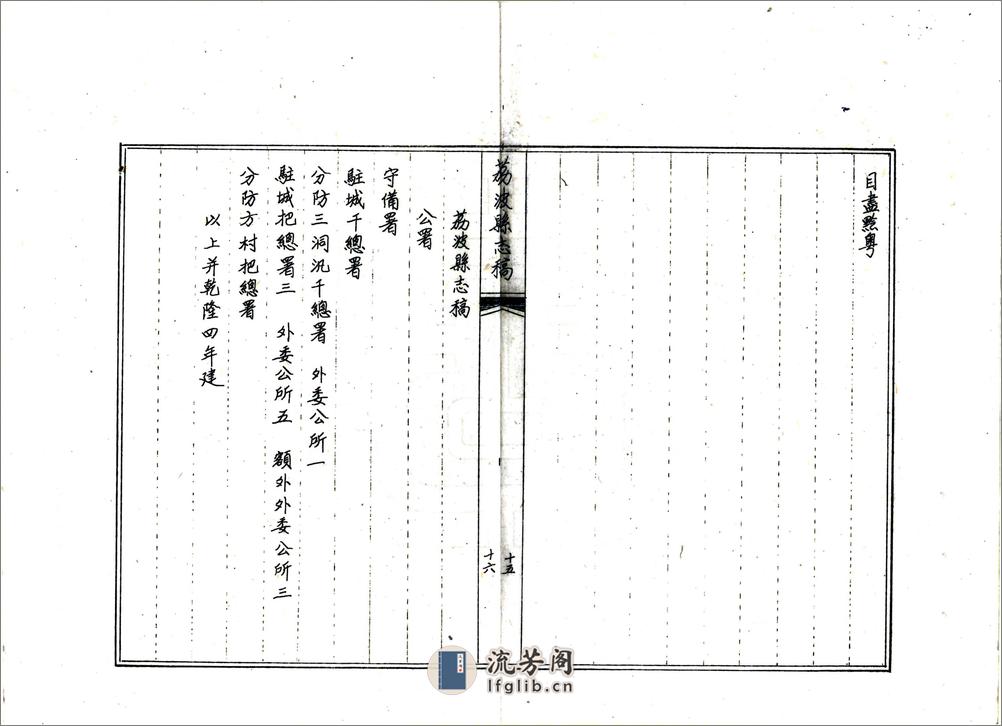 目盡黔粵
荔波縣志稿
十五
十六
荔波縣志稿
公署
守備署
駐城千總署
分防三洞汛千總署 外委公所一
駐城把總署三 外委公所五 額外外委公所三
分防方村把總署
以上并乾隆四年建
流芳阁
lfglib.cn